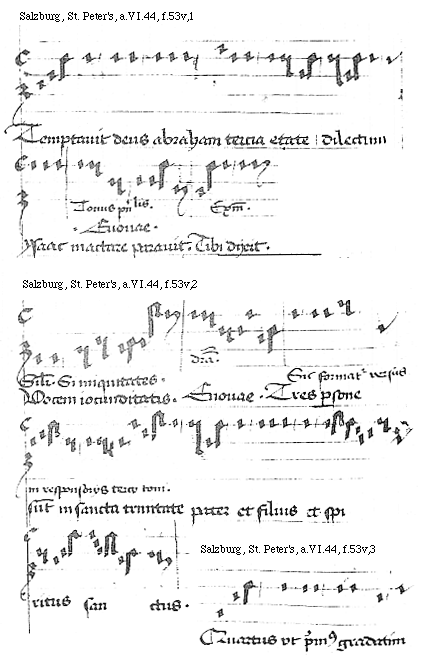 Salzburg, St. Peter's, a.VI.44, f.53v,1
Temptavit deus abraham tercia etate dilectum
Tonus Exm
Euouae
ysaac mactare paravit. Tibi dixit.
Salzburg, St. Peter's, a.VI.44, f.53v,2
Si iniquitates. Sic format versus
Vocem iocunditatis. Euouae. Tres psone
in responsorijs tercij toni.
sut in sancta trinitate pater et filius et spi
Salzburg, St. Peter's, a.VI.44, f.53v,3
ritus san ctus.
Quartus ut gradatim